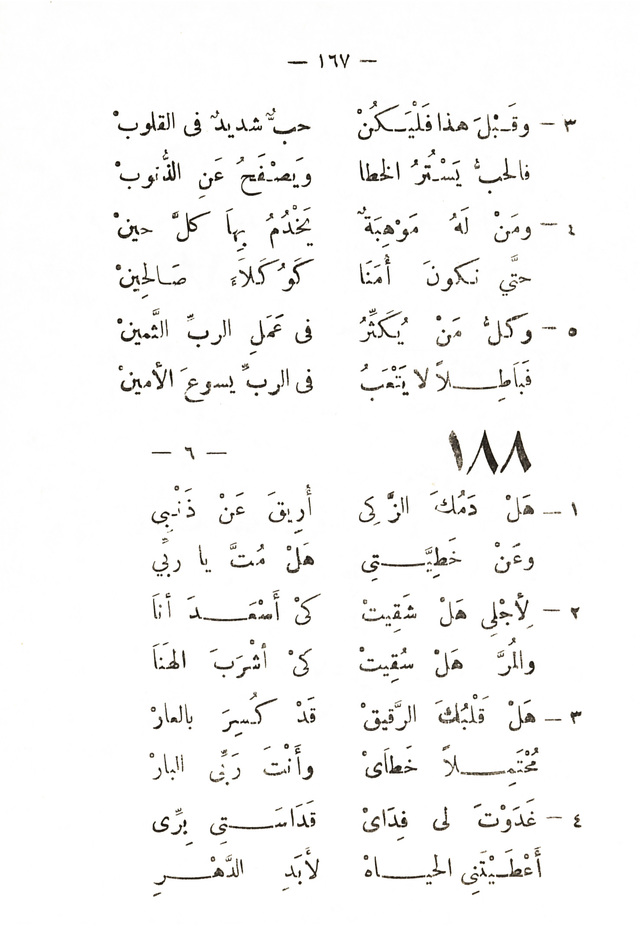 — ١٦٧ —
٣ — وقَبْلَ هذا فَلْيَكُنْ حبٌّ شديدٌ فى القلوبْ
فالحبُّ يَسْتُرُ الخطا وَيَصْفَحُ عَنِ الذُّنوبْ
٤ — ومَنْ لَهُ مَوْهِبَةٌ يَخْدُمُ بِهَا كلَّ حينْ
حتَّي نكونَ أُمَنَا كَوُكَلاَءَ صَالحِينْ
٥ — وَكلُّ مَنْ يُكَثِّرُ فى عَمَلِ الربِّ الثَّمينْ
فَبَاطِلاً لا يَتْعَبُ فى الربِّ يسوعَ الأمينْ
١٨٨ — ٦ —
١ — هَلْ دَمُكَ الزَّكِى أُرِيقَ عَنْ ذَنْبِي
وعَنْ خَطِيَّتِى هَلْ مُتَّ يا ربِّي
٢ — لِأجْلِى هَلْ شَقِيتْ كَىْ أَسْعَدَ أنَا
والمُرَّ هَلْ سُقِيتْ كَىْ أشْرَبَ الهَنَا
٣ — هَلْ قَلْبُكَ الرَّقيقْ قَدْ كُسِرَ بالعارْ
مُحْتَمِلاً خَطَاىْ وأَنْتَ رَبِّى البارْ
٤ — غَدَوْتَ لى فِدَاىْ قَدَاسَتِى بِرِّى
أَعْطَيْتَنِى الحياهْ لأبَدِ الدَّهْرِ